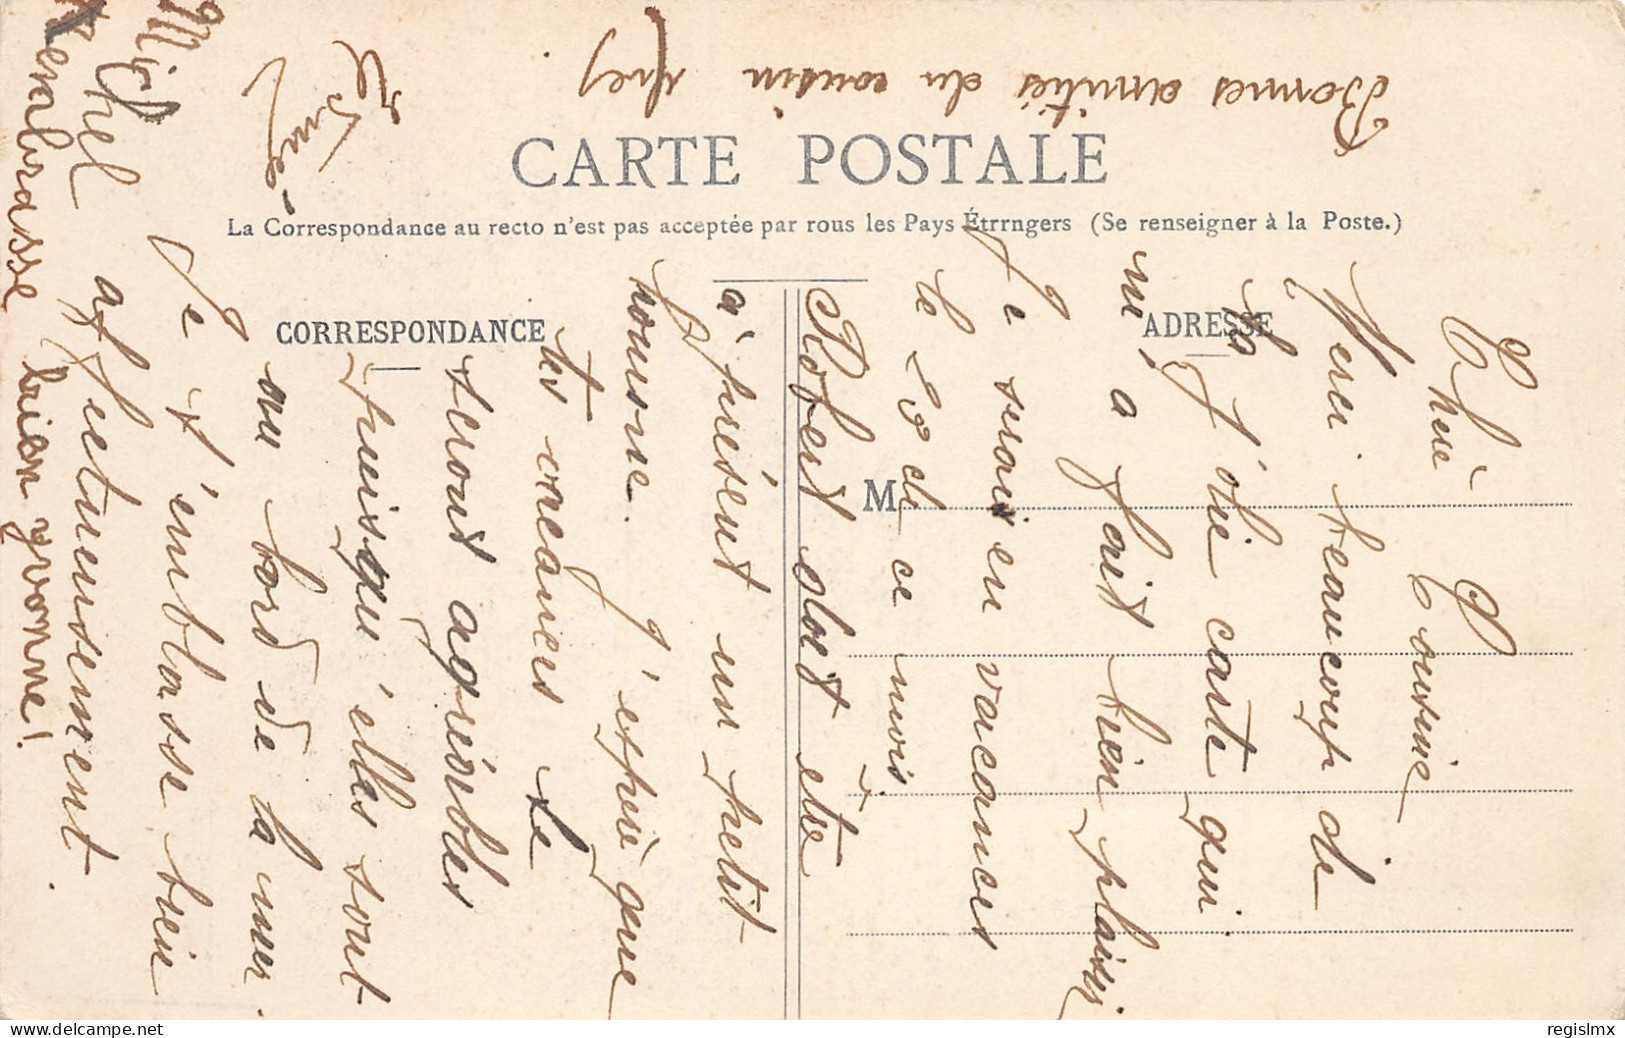 CARTE POSTALE
La Correspondance au recto n'est pas acceptée par rous les Pays Étrrngers (Se renseigner à la Poste.)
CORRESPONDANCE
ADRESSE
M
Chère Cousine
Merci beaucoup de
ta jolie carte qui
m'a fait bien plaisir
Je serais en vacances
le 28 de ce mois
Robert doit être
à présent un petit
homme. J'espère que
tes vacances te
seront agréables
puisqu'elles sont
au bord de la mer.
Je t'embrasse bien
affectueusement.
Michel
t'embrasse bien yvonne!
Bonnes amitiés du cousin
regislmx
delcampe.net